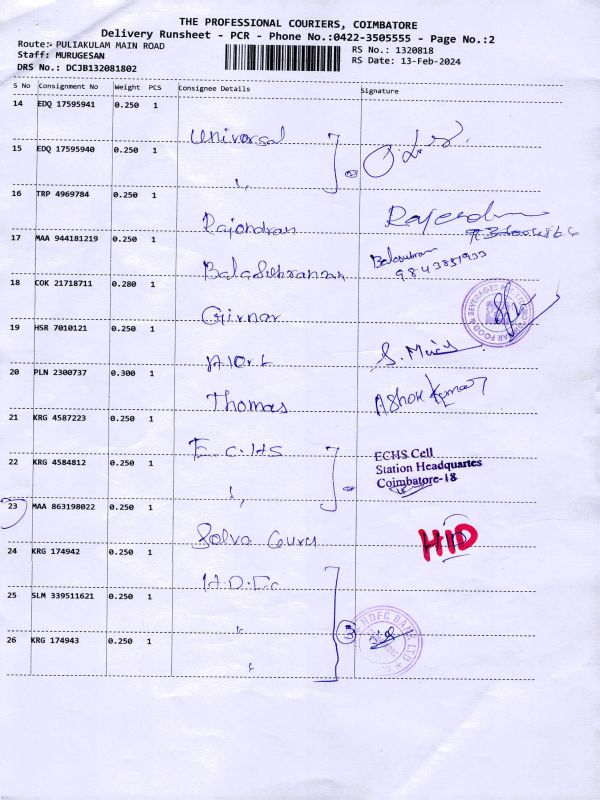 THE PROFESSIONAL COURIERS, COIMBATORE
Delivery Runsheet - PCR - Phone No.:0422-3505555 - Page No.:2
Route:- PULIAKULAM MAIN ROAD
RS No.: 1320818
Staff: MURUGESAN
RS Date: 13-Feb-2024
DRS No.: DCJB132081802
S No Consignment No Weight PCS Consignee Details Signature
14 EDQ 17595941 0.250 1
Universal
15 EDQ 17595940 0.250 1
16 TRP 4969784 0.250 1
Rajendran Rajendran
17 MAA 944181219 0.250 1
BalaSubramanian Balasubram
9843851933
18 COK 21718711 0.280 1
Girnar
19 HSR 7010121 0.250 1
Alert
20 PLN 2300737 0.300 1
Thomas Ashok Kumar
21 KRG 4587223 0.250 1
E.C.HS
ECHS Cell
Station Headquartes
Coimbatore-18
22 KRG 4584812 0.250 1
23 MAA 863198022 0.250 1
Selva Guru HID
24 KRG 174942 0.250 1
H.D.Fc
25 SLM 339511621 0.250 1
3 HDFC BANK LTD
26 KRG 174943 0.250 1